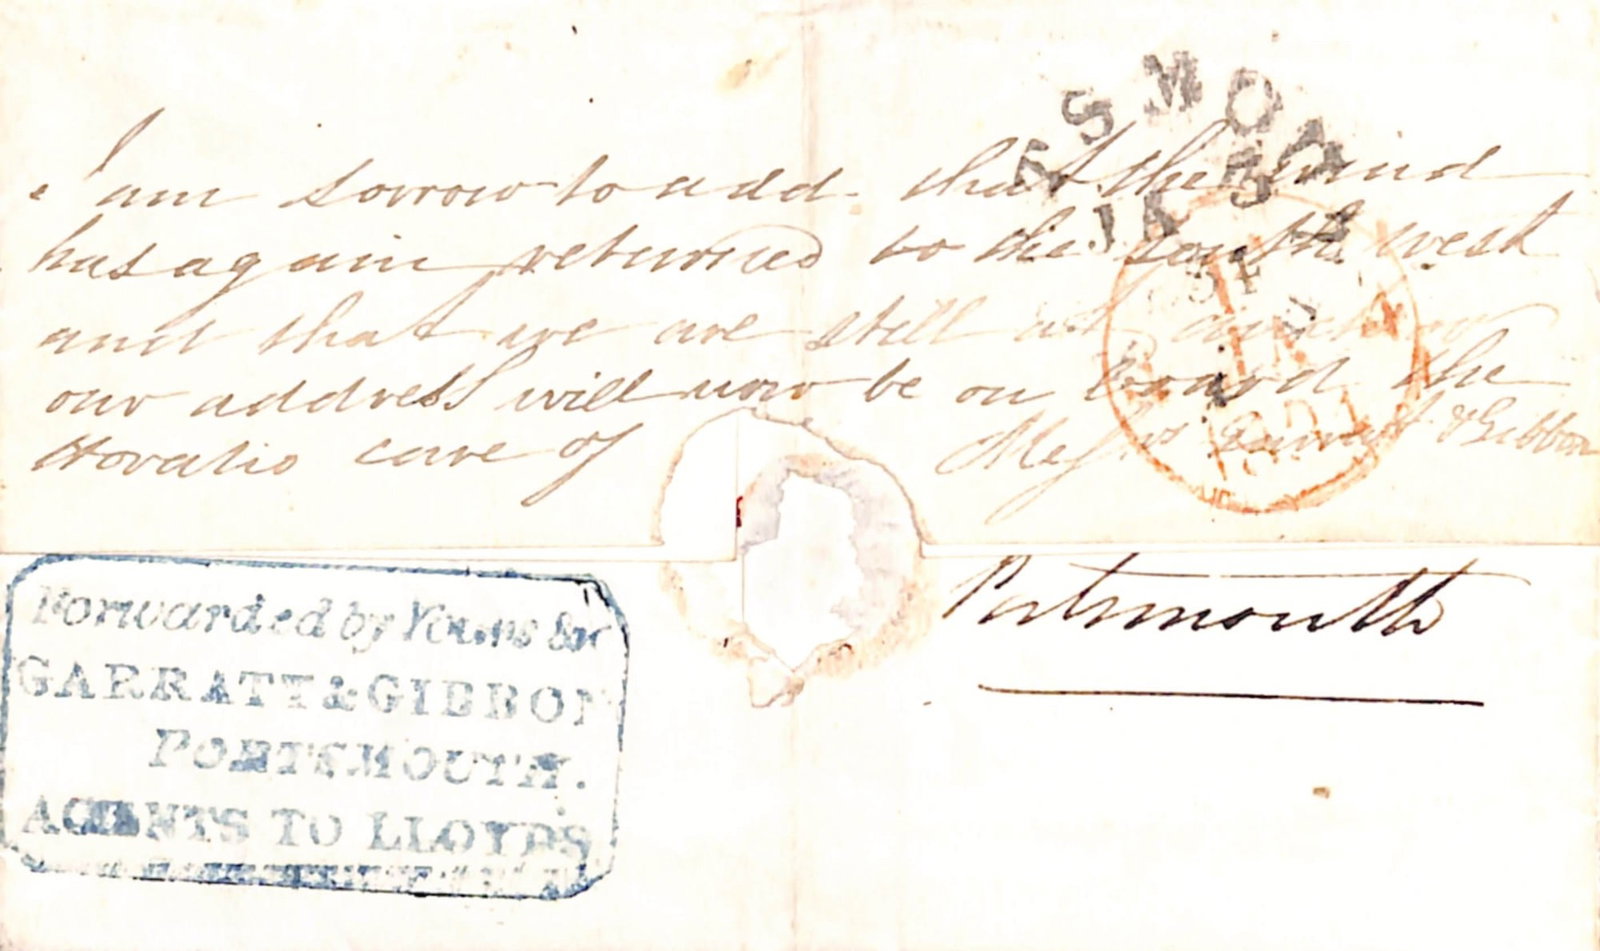 I am sorrow to add that the wind
has again returned to the south west
and that we are still at anchor
our address will now be on board the
Horatio care of Messrs Garratt & Gibbon
Portsmouth
Forwarded by Yours &c
GARRATT & GIBBON
PORTSMOUTH.
AGENTS TO LLOYDS